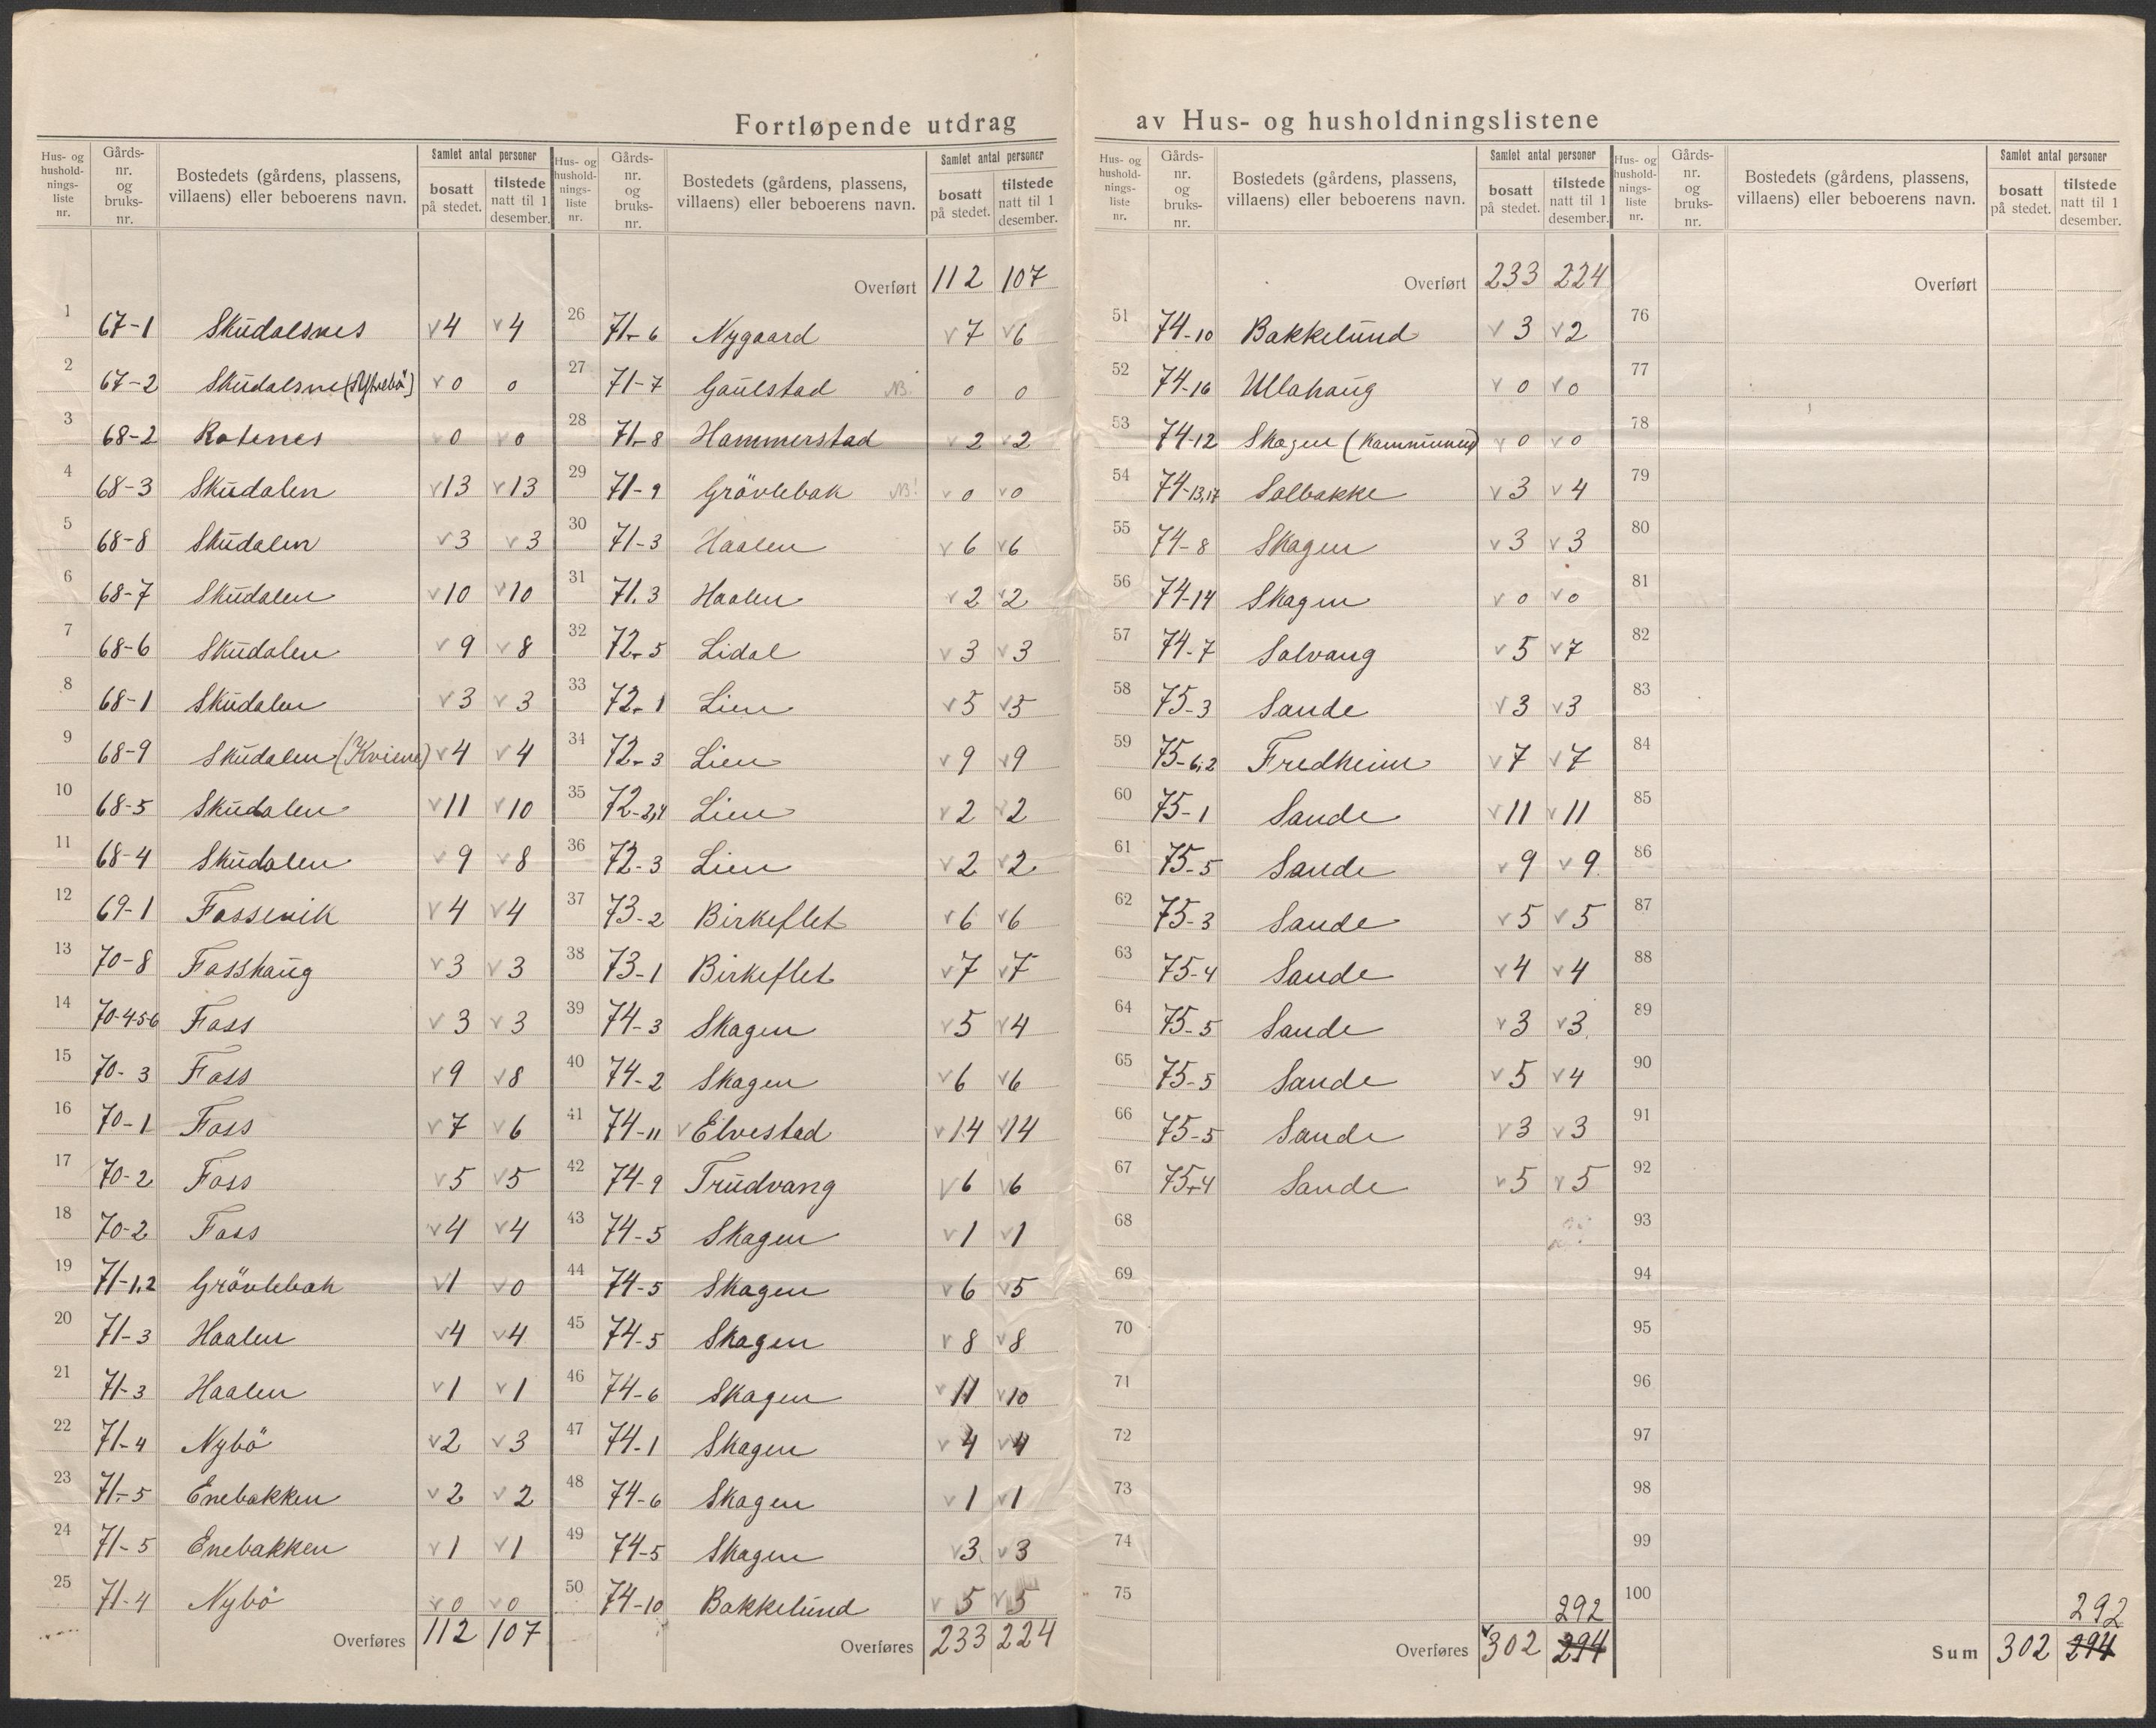 Fortløpende utdrag av Hus- og husholdningslistene
Hus- og hushold-nings-liste nr. | Gårds-nr. og bruks-nr. | Bostedets (gårdens, plassens, villaens) eller beboerens navn. | Samlet antal personer | bosatt på stedet. | tilstede natt til 1 desember.
1 67-1 Skudalsnes v4 v4
2 67-2 Skudalsne v0 0
3 68-2 Rotenes v0 v0
4 68-3 Skudalen v13 v13
5 68-8 Skudalen v3 v3
6 68-7 Skudalen v10 v10
7 68-6 Skudalen v9 v8
8 68-1 Skudalen v3 v3
9 68-9 Skudalen (Kviene) v4 v4
10 68-5 Skudalen v11 v10
11 68-4 Skudalen v9 v8
12 69-1 Fossevik v4 v4
13 70-8 Fosshaug v3 v3
14 70-4-5-6 Foss v3 v3
15 70-3 Foss v9 v8
16 70-1 Foss v7 v6
17 70-2 Foss v5 v5
18 70-2 Foss v4 v4
19 71-1,2 Grövlebak v1 v0
20 71-3 Haalen v4 v4
21 71-3 Haalen v1 v1
22 71-4 Nybö v2 v3
23 71-5 Enebakken v2 v2
24 71-5 Enebakken v1 v1
25 71-4 Nybö v0 v0
Overføres 112 107
Hus- og hushold-nings-liste nr. | Gårds-nr. og bruks-nr. | Bostedets (gårdens, plassens, villaens) eller beboerens navn. | Samlet antal personer | bosatt på stedet. | tilstede natt til 1 desember.
Overført 112 107
26 71-6 Nygaard v7 v6
27 71-7 Gaulstad NB. 0 0
28 71-8 Hammerstad v2 v2
29 71-9 Grövlebak NB! v0 v0
30 71-3 Haalen v6 v6
31 71.3 Haalen v2 v2
32 72-5 Lidal v3 v3
33 72-1 Lien v5 v5
34 72-3 Lien v9 v9
35 72-2,4 Lien v2 v2
36 72-3 Lien v2 v2
37 73-2 Birkeflet v6 v6
38 73-1 Birkeflet v7 v7
39 74-3 Skagen v5 v4
40 74-2 Skagen v6 v6
41 74-11 v Elvestad v14 v14
42 74-9 Trudvang v6 v6
43 74-5 Skagen v1 v1
44 74-5 Skagen v6 v5
45 74-5 Skagen v8 v8
46 74-6 Skagen v11 v10
47 74-1 Skagen v4 v4
48 74-6 Skagen v1 v1
49 74-5 Skagen v3 v3
50 74-10 Bakkelund v5 v5
Overføres 233 224
Hus- og hushold-nings-liste nr. | Gårds-nr. og bruks-nr. | Bostedets (gårdens, plassens, villaens) eller beboerens navn. | Samlet antal personer | bosatt på stedet. | tilstede natt til 1 desember.
Overført 233 224
51 74-10 Bakkelund v3 v2
52 74-16 Ullahaug v0 v0
53 74-12 Skagen (Kommunen) v0 v0
54 74-13,17 Solbakke v3 v4
55 74-8 Skagen v3 v3
56 74-14 Skagen v0 v0
57 74-7 Solvang v5 v7
58 75-3 Sande v3 v3
59 75-6,2 Fredheim v7 v7
60 75-1 Sande v11 v11
61 75-5 Sande v9 v9
62 75-3 Sande v5 v5
63 75-4 Sande v4 v4
64 75-5 Sande v3 v3
65 75-5 Sande v5 v4
66 75-5 Sande v3 v3
67 75-4 Sande v5 v5
68
69
70
71
72
73
74
75 292
Overføres v302 294
Hus- og hushold-nings-liste nr. | Gårds-nr. og bruks-nr. | Bostedets (gårdens, plassens, villaens) eller beboerens navn. | Samlet antal personer | bosatt på stedet. | tilstede natt til 1 desember.
Overført
76
77
78
79
80
81
82
83
84
85
86
87
88
89
90
91
92
93
94
95
96
97
98
99
100 292
Sum 302 294